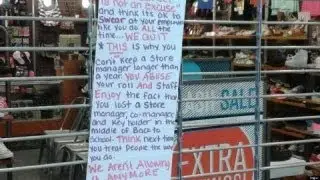 is not an excuse
and think its ok to
swear at your employees
like you do ALL the
time... WE QUIT
* THIS is why you
Cant Keep a store
manager longer than
a year. You ABUSE
Your roll And Staff
Enjoy the fact that
You lost a Store
manager, co-manager
and Key holder in the
middle of Back to
School. Think next time
you treat people the way
you do.
We Aren't Allowing
it ANYMORE
SALE
EXTRA